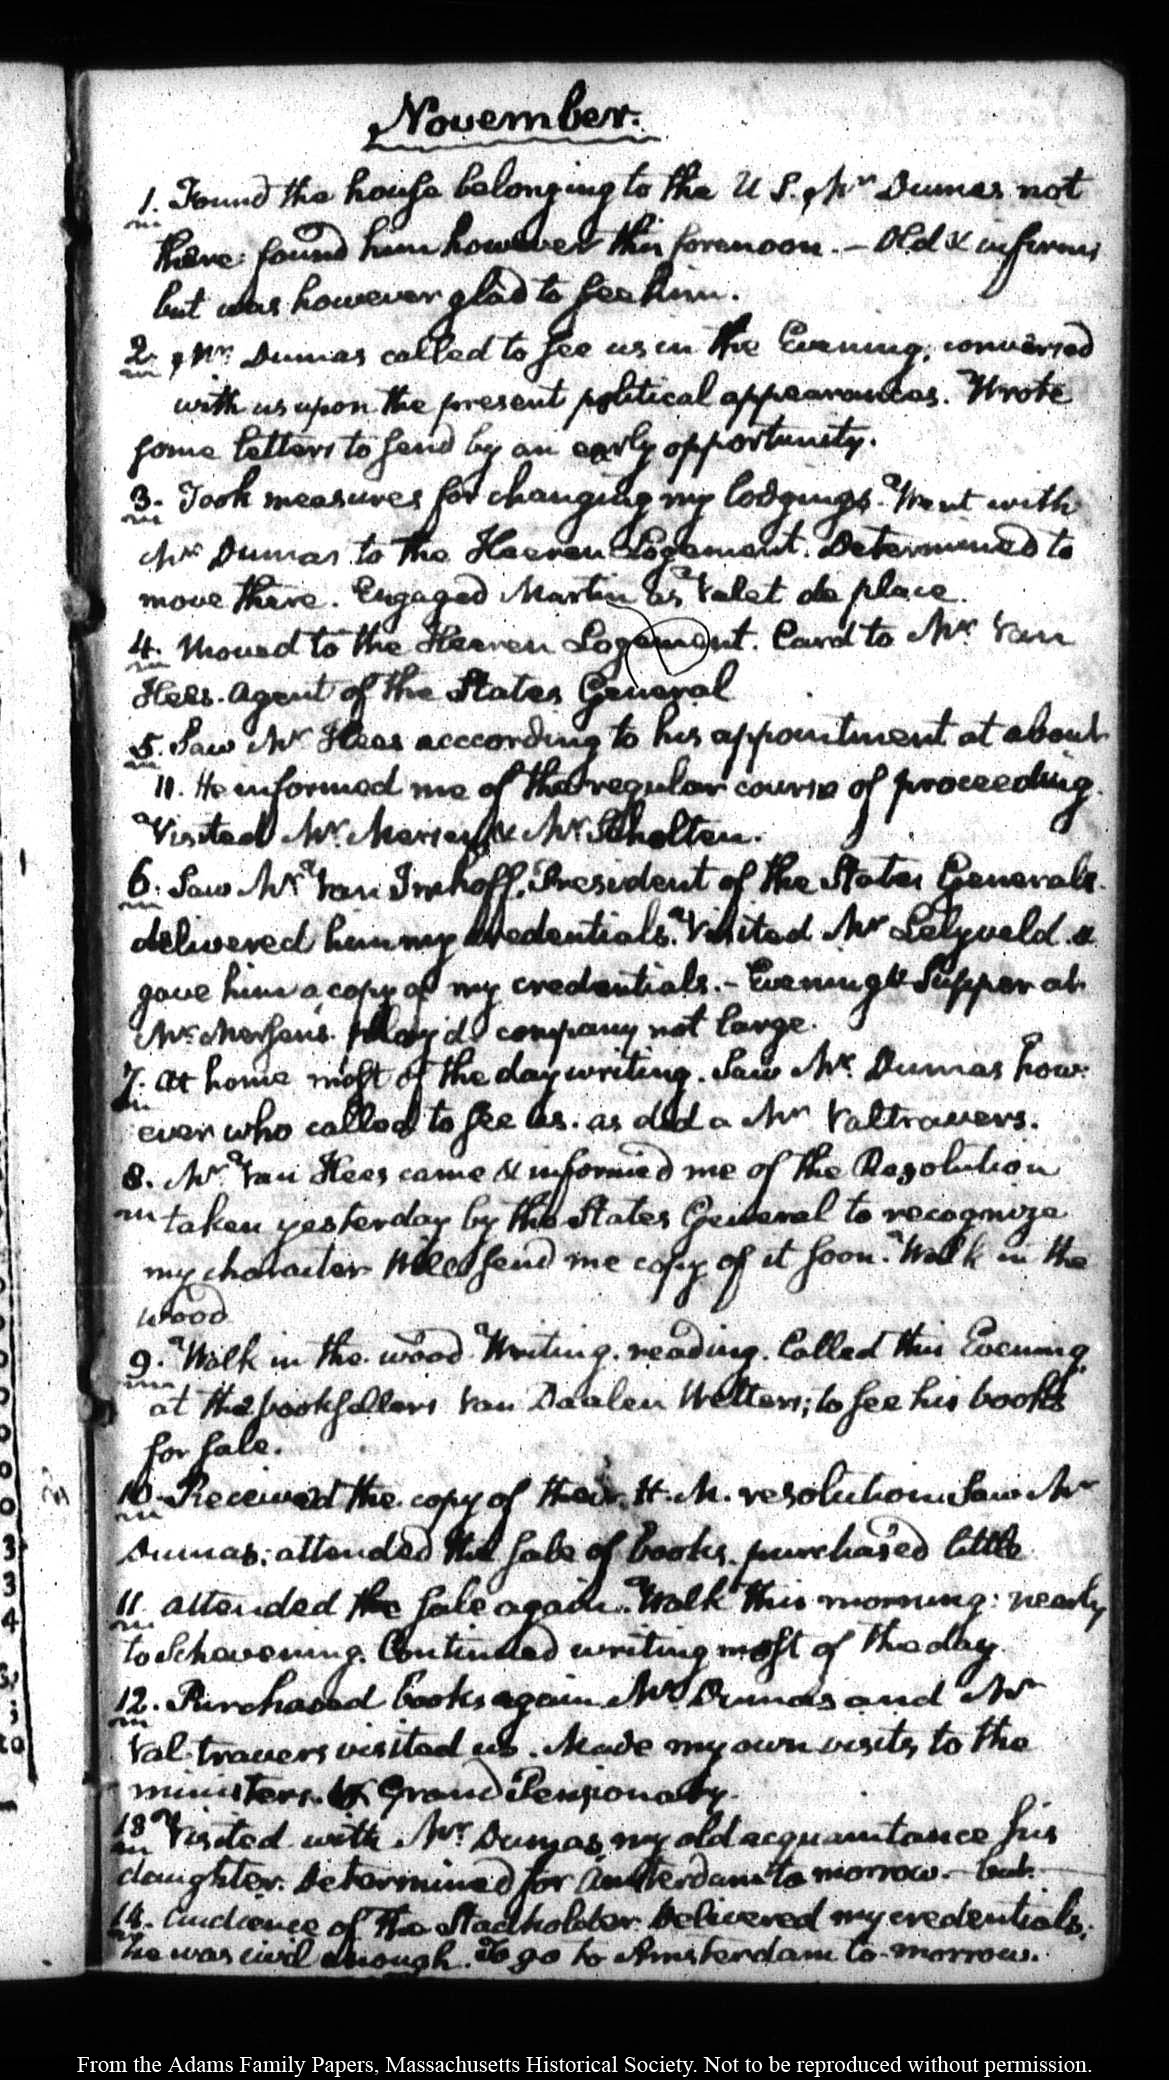 November.
1. Found the house belonging to the U S. Mr Dumas not
there: found him however this forenoon. — Old & infirm
but was however glad to see him.
2. Mr. Dumas called to see us in the Evening; conversed
with us upon the present political appearances. Wrote
some letters to send by an early opportunity.
3. Took measures for changing my lodgings. Went with
Mr Dumas to the Heeren Logement. Determined to
move there. Engaged Martin as Valet de place.
4. Moved to the Heeren Logement. Card to Mr. Van
Hees. Agent of the States General
5. Saw Mr Hees acccording to his appointment at about
11. He informed me of the regular course of proceeding.
Visited Mr. & Mr. Scholten.
6. Saw Mr. Van Imhoff, President of the States Generals.
delivered him my credentials. Visited Mr Lelyveld. &
gave him a copy of my credentials. - Evening & Supper at
Mr. play'd. company not large.
7. At home most of the day writing. Saw Mr. Dumas how-
ever who called to see us. as did a Mr Valtravers.
8. Mr. Van Hees came & informed me of the Resolution
taken yesterday by the States General to recognize
my character. Will send me copy of it soon. Walk in the
wood
9. Walk in the wood. Writing. reading. Called this Evening
at the booksellers Van Daalen Wetters; to see his books
for sale.
10. Received the copy of their H. M. resolution. Saw Mr
Dumas; attended the sale of books. purchased little
11. attended the sale again. Walk this morning: nearly
to Schevening. Continued writing most of the day.
12. Purchased books again. Mr. Dumas and Mr
Valtravers visited us. Made my own visits to the
ministers. & Grand Pensionary.
13 Visited with Mr. Dumas, my old acquaintance his
daughter. Determined for Amsterdam to morrow. — but.
14. Audience of the Stadholder. Delivered my credentials.
he was civil enough. To go to Amsterdam to-morrow.
3
3
4
to
From the Adams Family Papers, Massachusetts Historical Society. Not to be reproduced without permission.